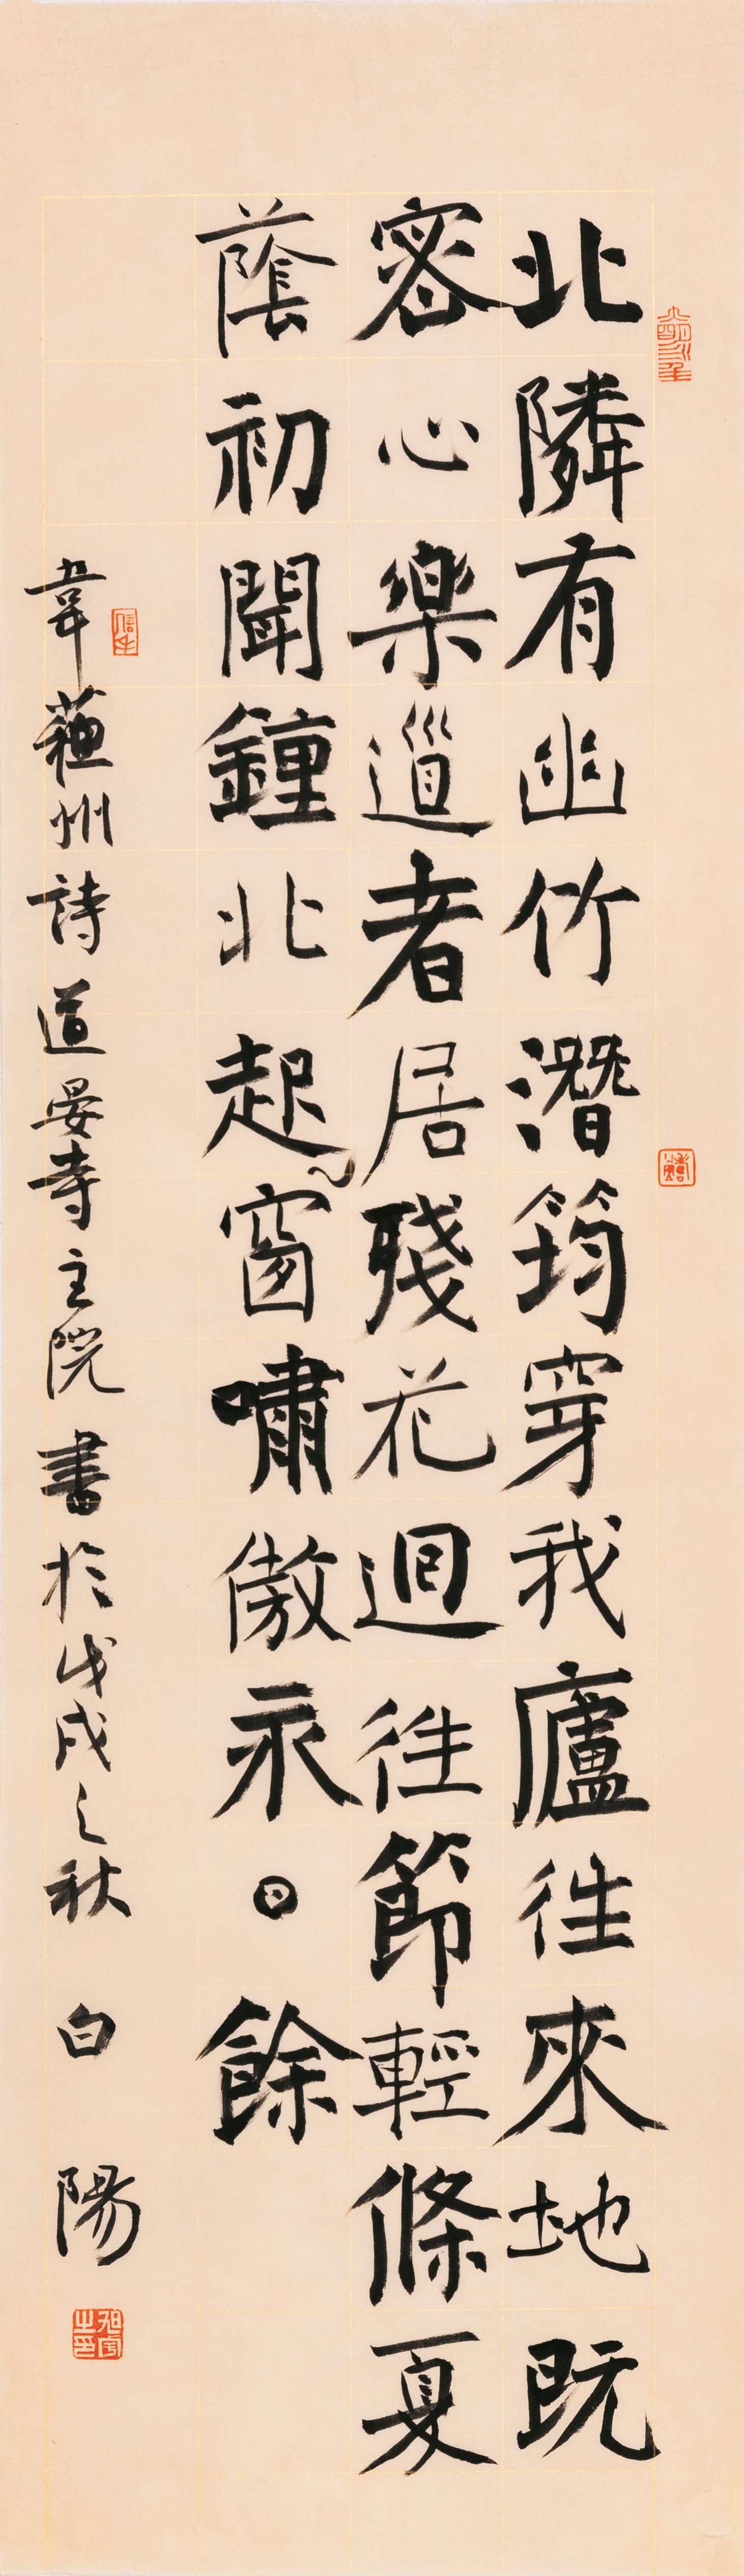 北隣有幽竹潛筠穿我廬往來地既
密心樂道者居殘花迴往節輕條夏
蔭初聞鐘北起窗嘯傲永日餘
韋蘇州詩道晏寺主院書於戊戌之秋 白陽